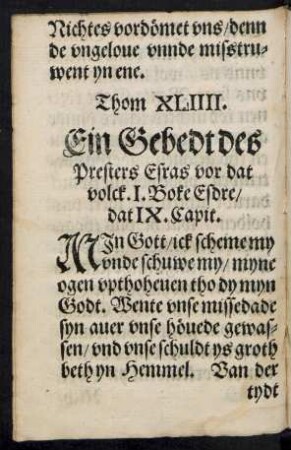 Nichtes vordömet vns/denn
de vngeloue vnnde misstru-
went yn ene.
Thom XLIIII.
Ein Gebedt des
Presters Esras vor dat
volck. I. Boke Esdre/
dat IX. Capit.
MIn Gott/ick scheme my
vnde schuwe my/ myne
ogen vpthoheuen tho dy myn
Godt. Wente vnse missedade
syn auer vnse höuede gewas-
sen/ vnd vnse schuldt ys groth
beth yn Hemmel. Van der
tydt